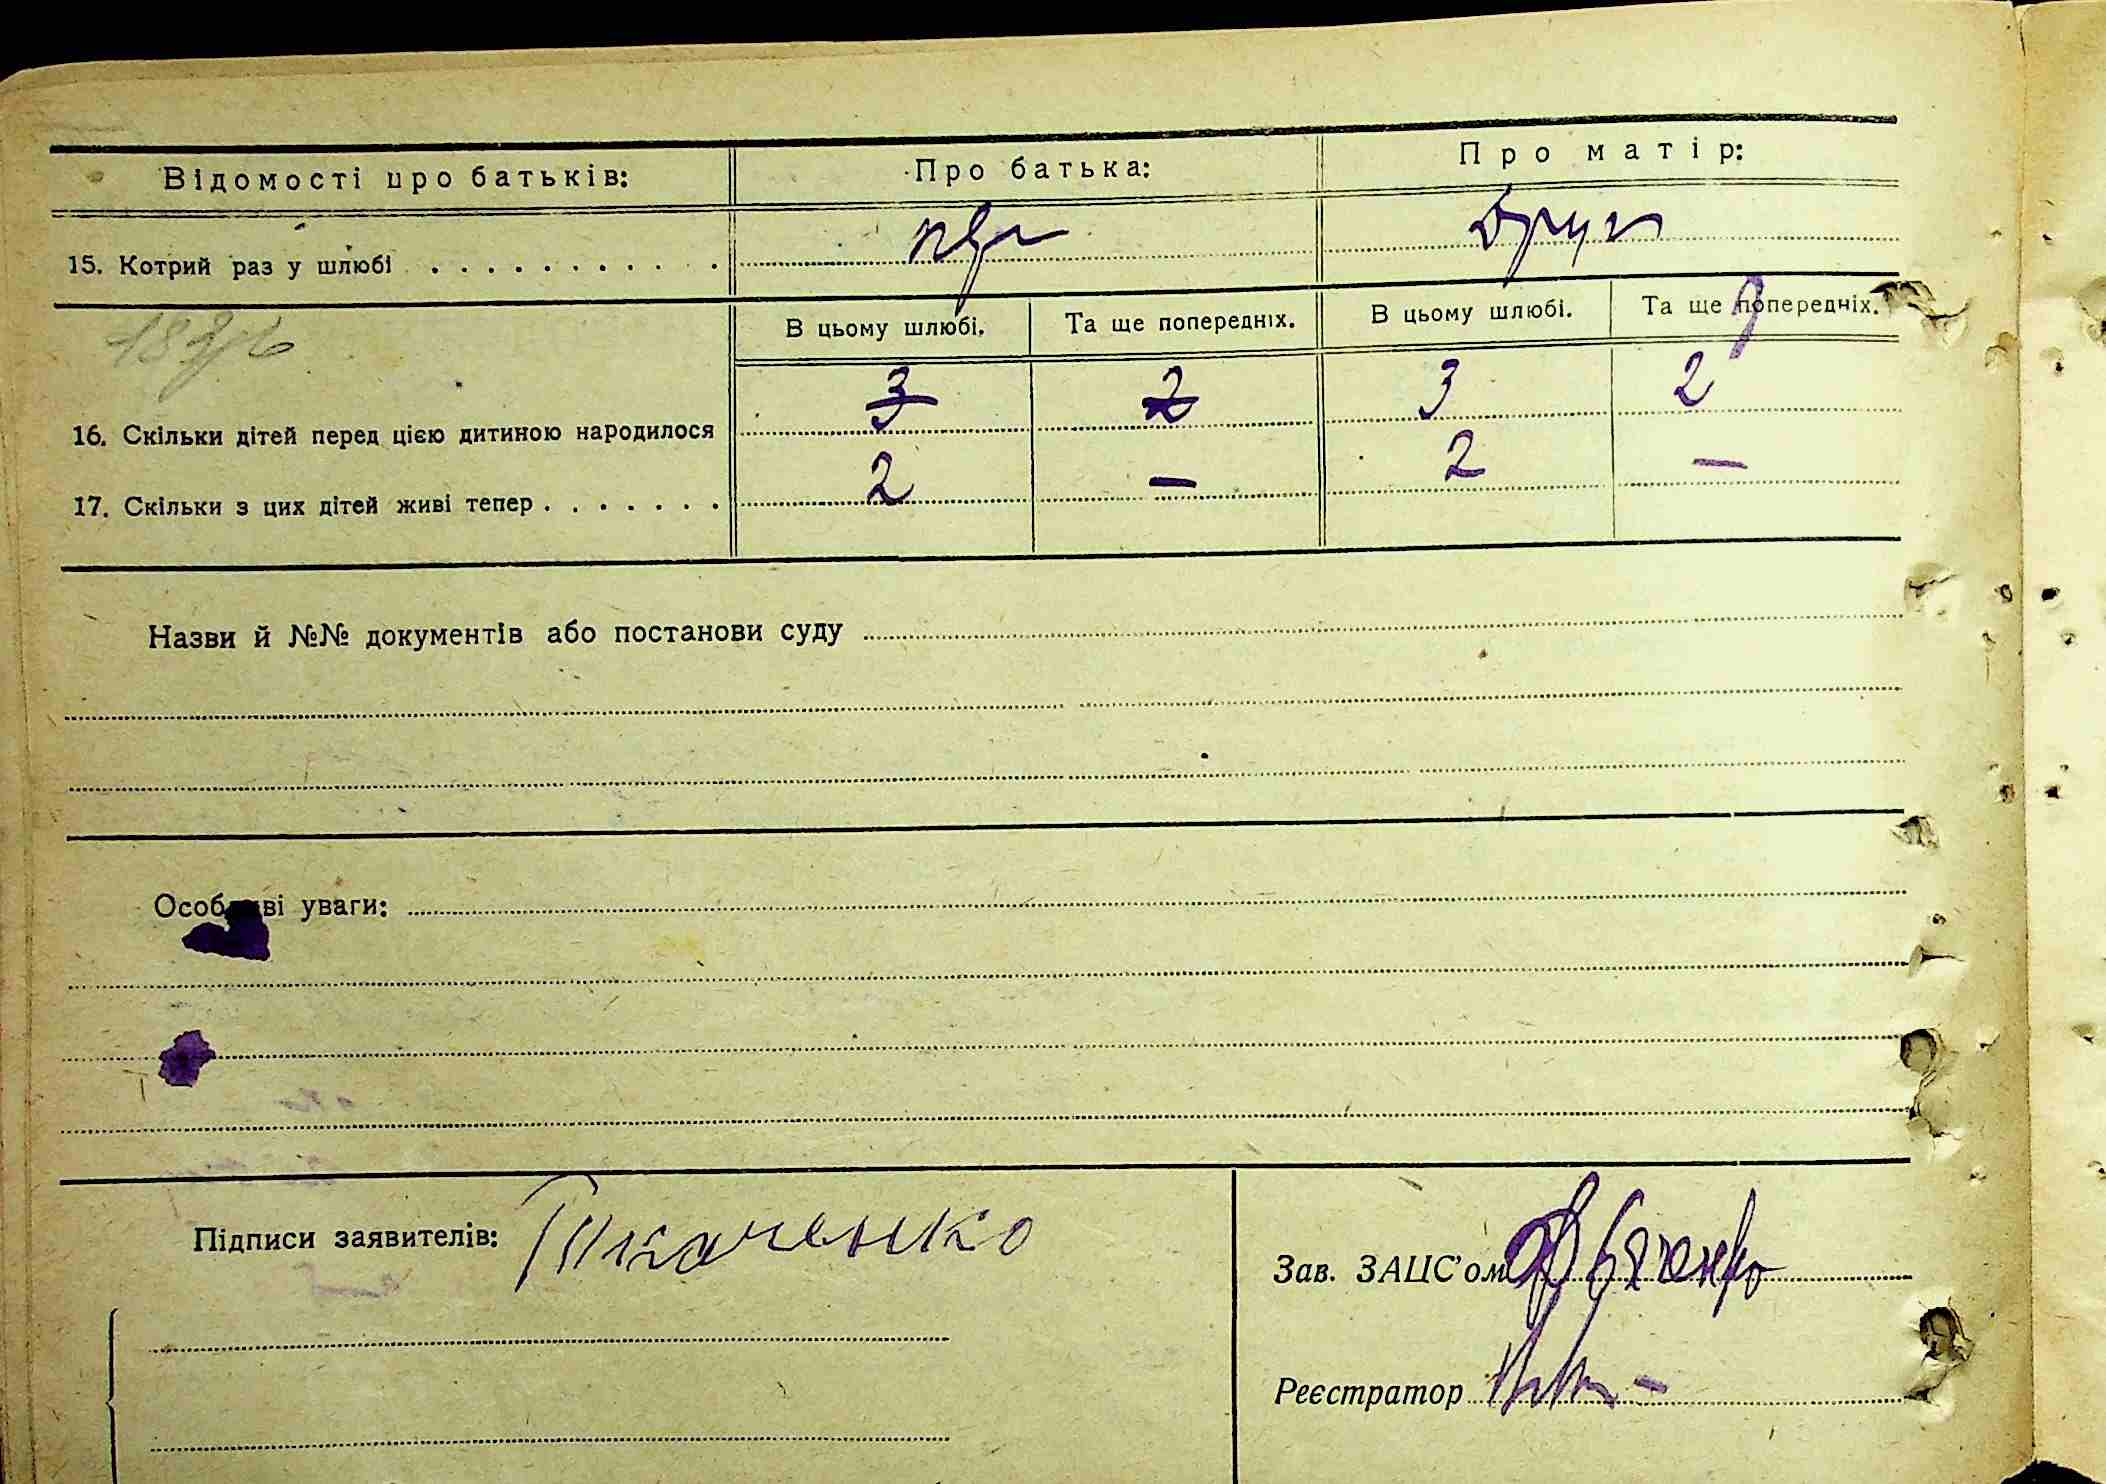 Відомості про батьків: Про батька: Про матір:
15. Котрий раз у шлюбі . . . . . . . . . . . друг
В цьому шлюбі. Та ще попередніх. В цьому шлюбі. Та ще попередніх.
16. Скільки дітей перед цією дитиною народилося 3 2 3 2
17. Скільки з цих дітей живі тепер . . . . . . . 2 — 2 —
Назви й №№ документів або постанови суду
Особливі уваги:
Підписи заявителів: Ткаченко
Зав. ЗАЦС’ом
Реєстратор